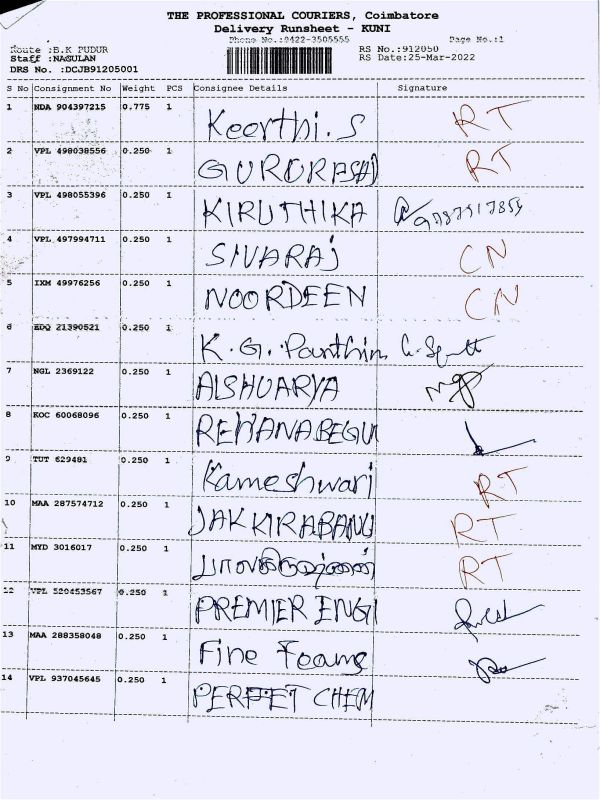 THE PROFESSIONAL COURIERS, Coimbatore
Delivery Runsheet - KUNI
Phone No.:0422-3505555 Page No.:1
Route :B.K PUDUR RS No.:912050
Staff :NASULAN RS Date:25-Mar-2022
DRS No. :DCJB91205001
S No Consignment No Weight PCS Consignee Details Signature
1 NDA 904397215 0.775 1 Keerthi.S RT
2 VPL 498038556 0.250 1 RT
3 VPL 498055396 0.250 1 KIRUTHIKA
4 VPL 497994711 0.250 1 SIVARAJ CN
5 IXM 49976256 0.250 1 NOORDEEN CN
6 EDQ 21390521 0.250 1 K.G.
7 NGL 2369122 0.250 1 AISHUARYA
8 KOC 60068096 0.250 1 REHANABEGU
9 TUT 629481 0.250 1 Kameshwari RT
10 MAA 287574712 0.250 1 JAKKIRABANU RT
11 MYD 3016017 0.250 1 RT
12 VPL 520453567 0.250 1 PREMIER ENGI
13 MAA 288358048 0.250 1 Fine Foams
14 VPL 937045645 0.250 1 PERFET CHEM